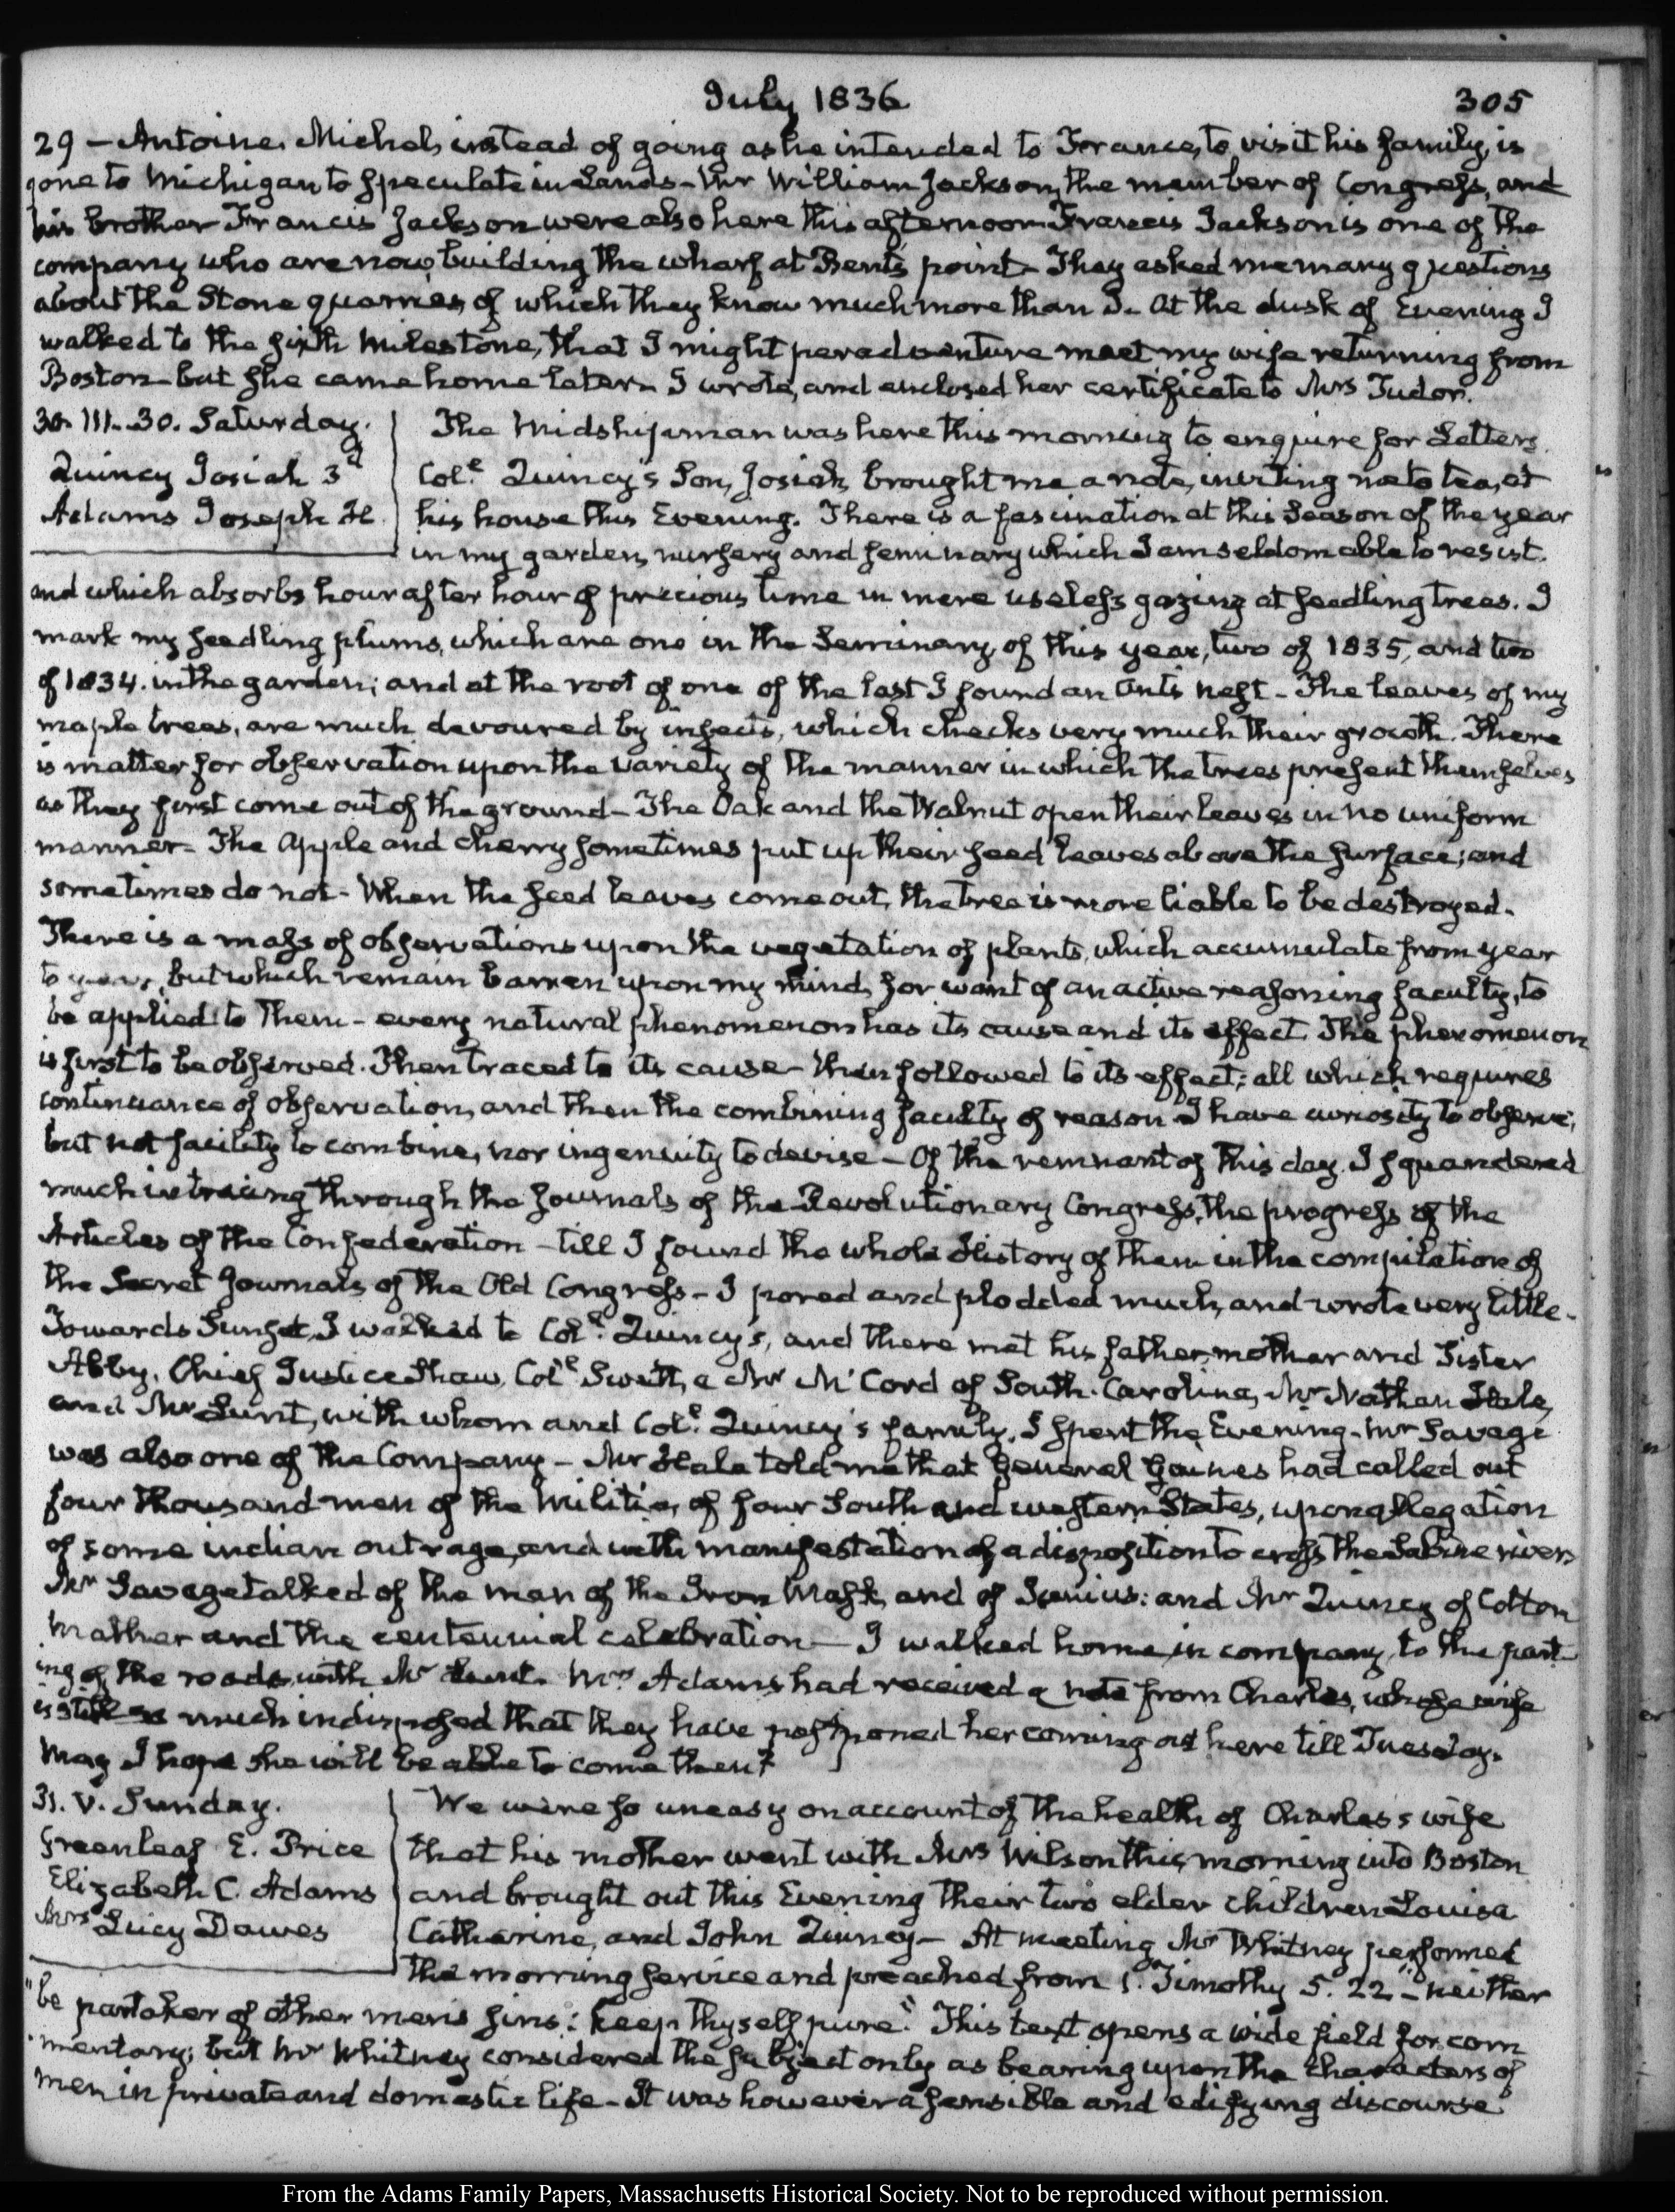 July 1836
305
29 – Antoine Michel, instead of going as he intended to France, to visit his family, is
gone to Michigan to speculate in Lands – Mr William Jackson, the member of Congress, and
his brother Francis Jackson were also here this afternoon Francis Jackson is one of the
company who are now building the wharf at Bent's point – They asked me many questions
about the Stone quarries, of which they know much more than I – At the dusk of Evening I
walked to the sixth Milestone, that I might peradventure meet my wife returning from
Boston – but she came home later – I wrote, and enclosed her certificate to Mrs Tudor.
30. III..30. Saturday.
Quincy Josiah 3d
Adams Joseph H.
The Midshipman was here this morning to enquire for Letters
Col.l Quincy's Son, Josiah, brought me a note, inviting me to tea, at
his house this Evening. There is a fascination at this Season of the year
in my garden, nursery and seminary which I am seldom able to resist.
and which absorbs hour after hour of precious time in mere useless gazing at seedling trees. I
mark my seedling plums, which are one in the Seminary of this year, two of 1835, and two
of 1834. in the garden; and at the root of one of the last I found an Ants nest – The leaves of my
maple trees, are much devoured by insects, which checks very much their growth. There
is matter for observation upon the variety of the manner in which the trees present themselves
as they first come out of the ground – The Oak and the Walnut open their leaves in no uniform
manner – The Apple and cherry sometimes put up their seed leaves above the surface; and
sometimes do not – When the seed leaves come out, the tree is more liable to be destroyed.
There is a mass of observations upon the vegetation of plants, which accumulate from year
to year, but which remain barren upon my mind, for want of an active reasoning faculty, to
be applied to them – every natural phenomenon has its cause and its effect The phenomenon
is first to be observed. Then traced to its cause – then followed to its effect; all which requires
continuance of observation, and then the combining faculty of reason I have curiosity to observe,
but not facility to combine, nor ingenuity to devise – Of the remnant of this day, I squandered
much in tracing through the Journals of the Revolutionary Congress, the progress of the
Articles of the Confederation – till I found the whole History of them in the compilation of
the Secret Journals of the Old Congress – I pored and plodded much, and wrote very little –
Towards Sunset, I walked to Col.l Quincy's, and there met his father, mother and Sister
Abby, Chief Justice Shaw, Col.l Swett, a Mr M'Cord of South-Carolina, Mr Nathan Hale,
and Mr Lunt, with whom and Col.l Quincy's family, I spent the Evening – Mr Savage
was also one of the Company – Mr Hale told me that General Gaines had called out
four thousand men of the Militia, of four South and western States, upon allegation
of some indian outrage, and with manifestation of a disposition to cross the Sabine river.
Mr Savage talked of the man of the Iron Mask, and of Junius: and Mr Quincy of Cotton
Mather and the centennial celebration – I walked home in company, to the part-
ing of the roads, with Mr Lunt. Mrs Adams had received a note from Charles, whose wife
is still so much indisposed that they have postponed her coming out here till Tuesday.
May I hope she will be able to come then?
31. V. Sunday.
Greenleaf E. Price
Elizabeth C. Adams
Mrs Lucy Dawes
We were so uneasy on account of the health of Charles's wife
that his mother went with Mrs Wilson this morning into Boston
and brought out this Evening their two elder children Louisa
Catharine, and John Quincy – At meeting Mr Whitney performed
the morning service and preached from 1. Timothy 5. 22 – neither
"be partaker of other men's sins: keep thyself pure." This text opens a wide field for com
mentary; but Mr Whitney considered the subject only as bearing upon the characters of
men in private and domestic life – It was however a sensible and edifying discourse
From the Adams Family Papers, Massachusetts Historical Society. Not to be reproduced without permission.